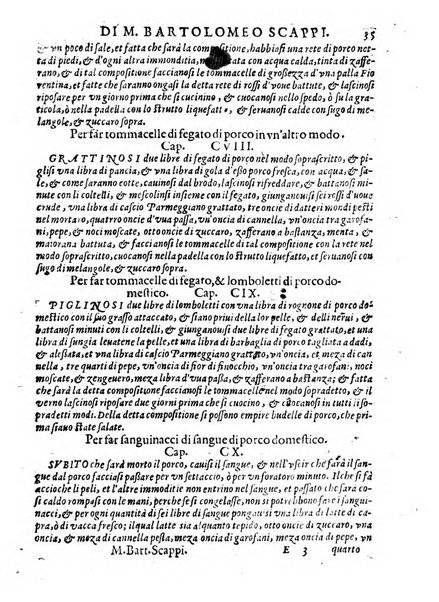 DI M. BARTOLOMEO SCAPPI. 35
un poco di sale, et fatta che sarà la compositione, habbiasi una rete di porco net-
ta di piedi, & d'ogni altra immonditia, ta con acqua calda, tinta di zaffe-
rano, & di tal compositione faccianosi le tommacelle di grossezza d'una palla Fio
rentina, et fatte che saranno ongasi la detta rete di rossi d'voue battute, & lascinosi
riposare per vn giorno prima che si cucinino, & cuocanosi nello spedo, ò su la gra-
ticola, ò nella padella con lo strutto liquefatto, & seruanosi calde con sugo di me-
langole, & zuccaro sopra.
Per far tommacelle di fegato di porco in vn'altro modo.
Cap. CVIII.
GRATTINOSI due libre di fegato di porco nel modo soprascritto, & pi-
glisi vna libra di pancia, & vna libra di gola d'esso porco fresca, con acqua, & sa-
le, & come saranno cotte, cauinosi dal brodo, lascinosi rifreddare, & battinosi minute
con li coltelli, & mescolinsi insieme con il fegato, giungansi sei rossi d'voue
crude, vna libra di cascio Parmeggiano grattato, tre oncie di datteri mondi pesti
nel mortaro, quattro oncie d'vua passa, vn'oncia di cannella, vn'oncia tra garofa-
ni, pepe, & noci moscate, otto oncie di zuccaro, zafferano a bastanza, menta, &
maiorana battuta, & faccianosi le tommacelle di tal compositione con la rete nel
modo sopradetto, & cuocanosi nella padella con lo strutto liquefatto, et seruanosi con
sugo di melangole, & zuccaro sopra.
Per far tommacelle di fegato, & lomboletti di porco do-
mestico. Cap. CIX.
PIGLINOSI due libre di lomboletti con vna libra di rognone di porco do-
mestico con il suo grasso attaccato, & sianosi priui della lor pelle, & delli nerui, &
battanosi minuti con li coltelli, & giunganouisi due libre di fegato grattato, et vna
libra di sommata leuatene la pelle, et vna libra di barbaglia di porco tagliata a dadi,
& alessata, et vna libra di cascio Parmeggiano grattato, vn'oncia, et meza di cannel
la, tre quarti di pepe, vn'oncia di fior di finocchio, vn'oncia tra garofani, noci
moscate, & zengeuero, meza libra d'vua passa, & zafferano a bastanza; & fatta
che sarà la detta compositione faccianosi le tommacelle nel modo sopradetto, & il
verno lascinosi riposare due giorni prima che si cuocino, & cuocanosi in tutti li so-
pradetti modi. Della detta compositione si possono empire budelle di porco, che pri-
ma siano state salate.
Per far sanguinacci di sangue di porco domestico.
Cap. CX.
SVBITO che sarà morto il porco, cauisi il sangue, & nell'vscir che farà il san-
gue dal corpo facciasi passare per vn settaccio, ò per vn foratoro minuto. Ilche si fà
acciochè li peli, et altre immoditie non entrino nel sangue, & passato che sarà co-
sì caldo rompasi con le mani, perche se si congelasse, non si potrebbono fare i sangui-
nacci, & per ogni sei libre di sangue, giungauisi due libre di latte grasso di capra,
ò di vacca fresco; ilqual latte sia alquanto tepido, otto oncie di zuccaro, vna on-
cia, & meza di cannella, meza oncia di garofani, meza oncia di pepe, vn
M. Bart. Scappi. E 3 quarto